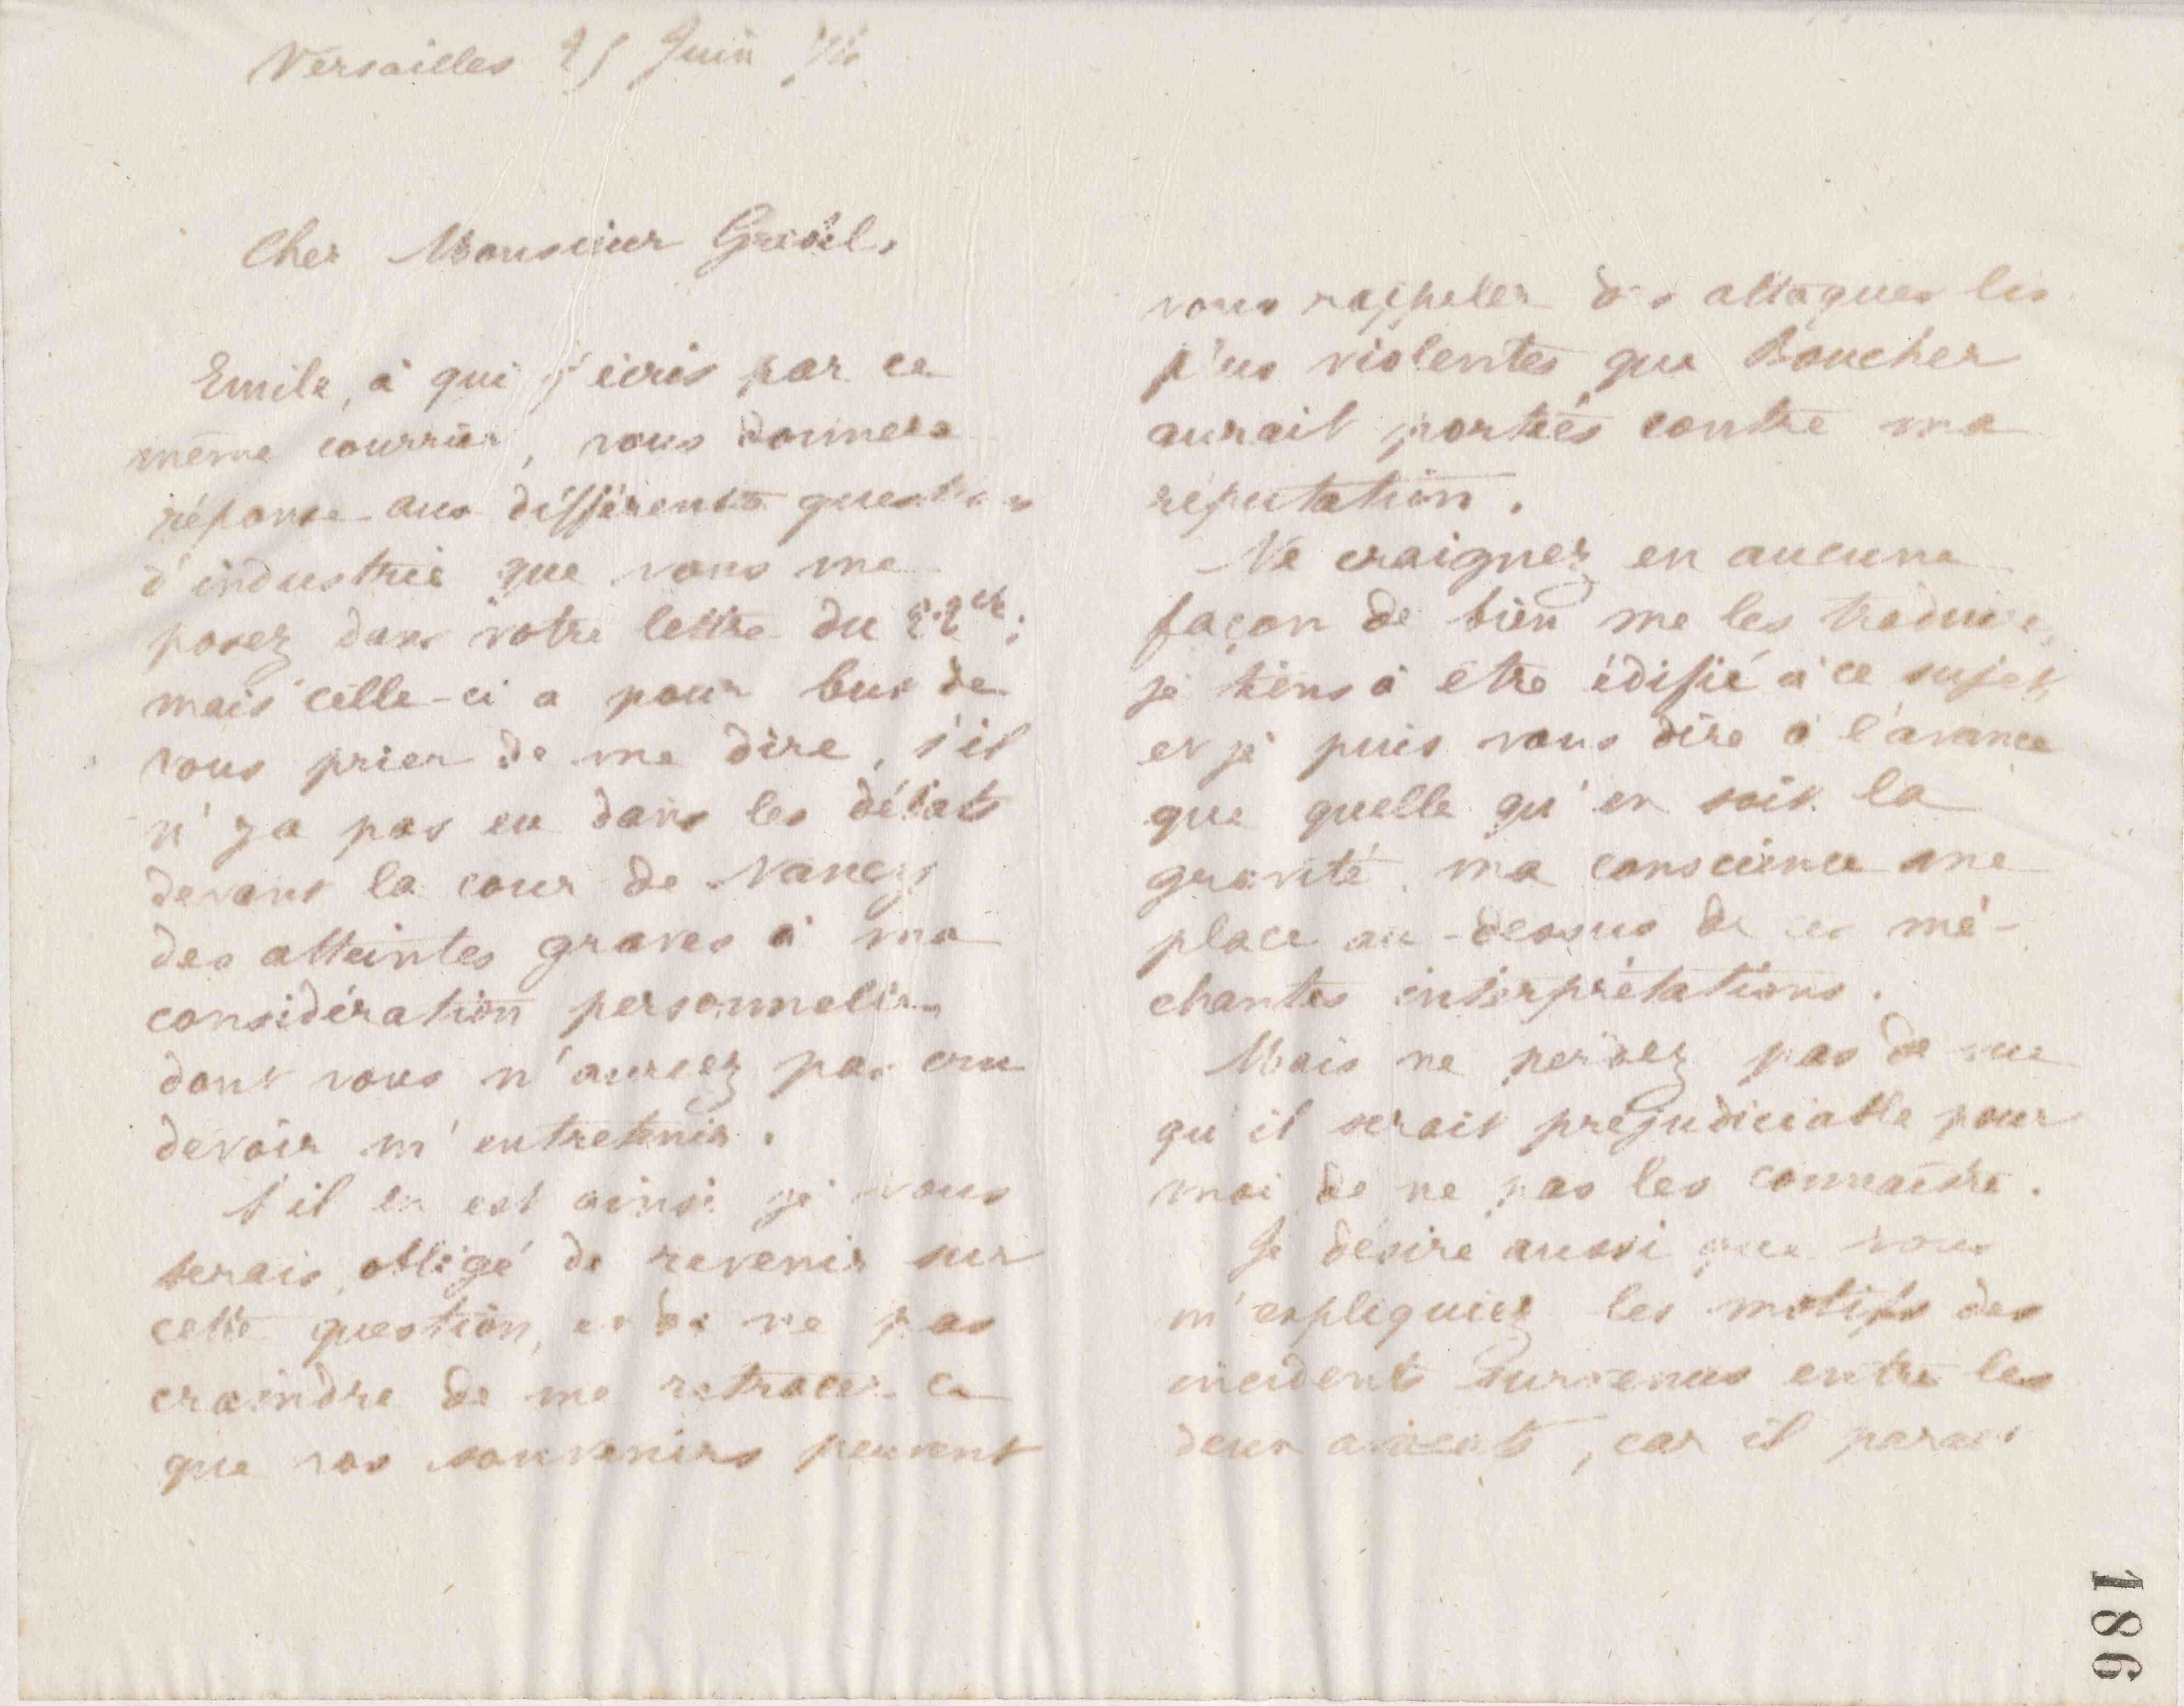 Versailles 25 Juin
Cher Monsieur Grebel,
Emile, à qui j'écris par ce
même courrier, vous donnera
réponse aux différentes questions
d'industrie que vous me
posez dans votre lettre du 22 ct;
mais celle-ci a pour but de
vous prier de me dire, s'il
n'y a pas eu dans les débats
devant la cour de Nancy
des atteintes graves à ma
considération personnelle
dont vous n'auriez pas cru
devoir m'entretenir.
S'il en est ainsi je vous
serais obligé de revenir sur
cette question, et de ne pas
craindre de me retracer ce
que vos souvenirs peuvent
vous rappeler des attaques les
plus violentes que Boucher
aurait portées contre ma
réputation.
Ne craignez en aucune
façon de bien me les traduire,
je tiens à etre édifié à ce sujet,
et je puis vous dire à l'avance
que quelle qu'en soit la
gravité, ma conscience me
place au-dessus de ces mé-
chantes interprétations.
Mais ne perdez pas de vue
qu'il serait préjudiciable pour
moi de ne pas les connaître.
Je désire aussi que vous
m'expliquiez les motifs des
incidents survenus entre les
deux avocats, car il parait
186